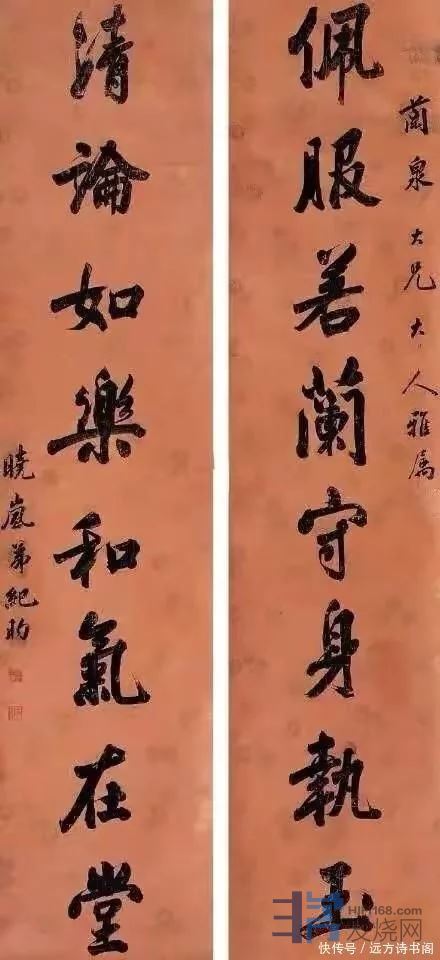 蘭泉大兄大人雅屬
佩服若蘭守身執玉
清論如樂和氣在堂
曉嵐弟紀昀
HIFI168.com
发烧网
快传号/远方诗书阁